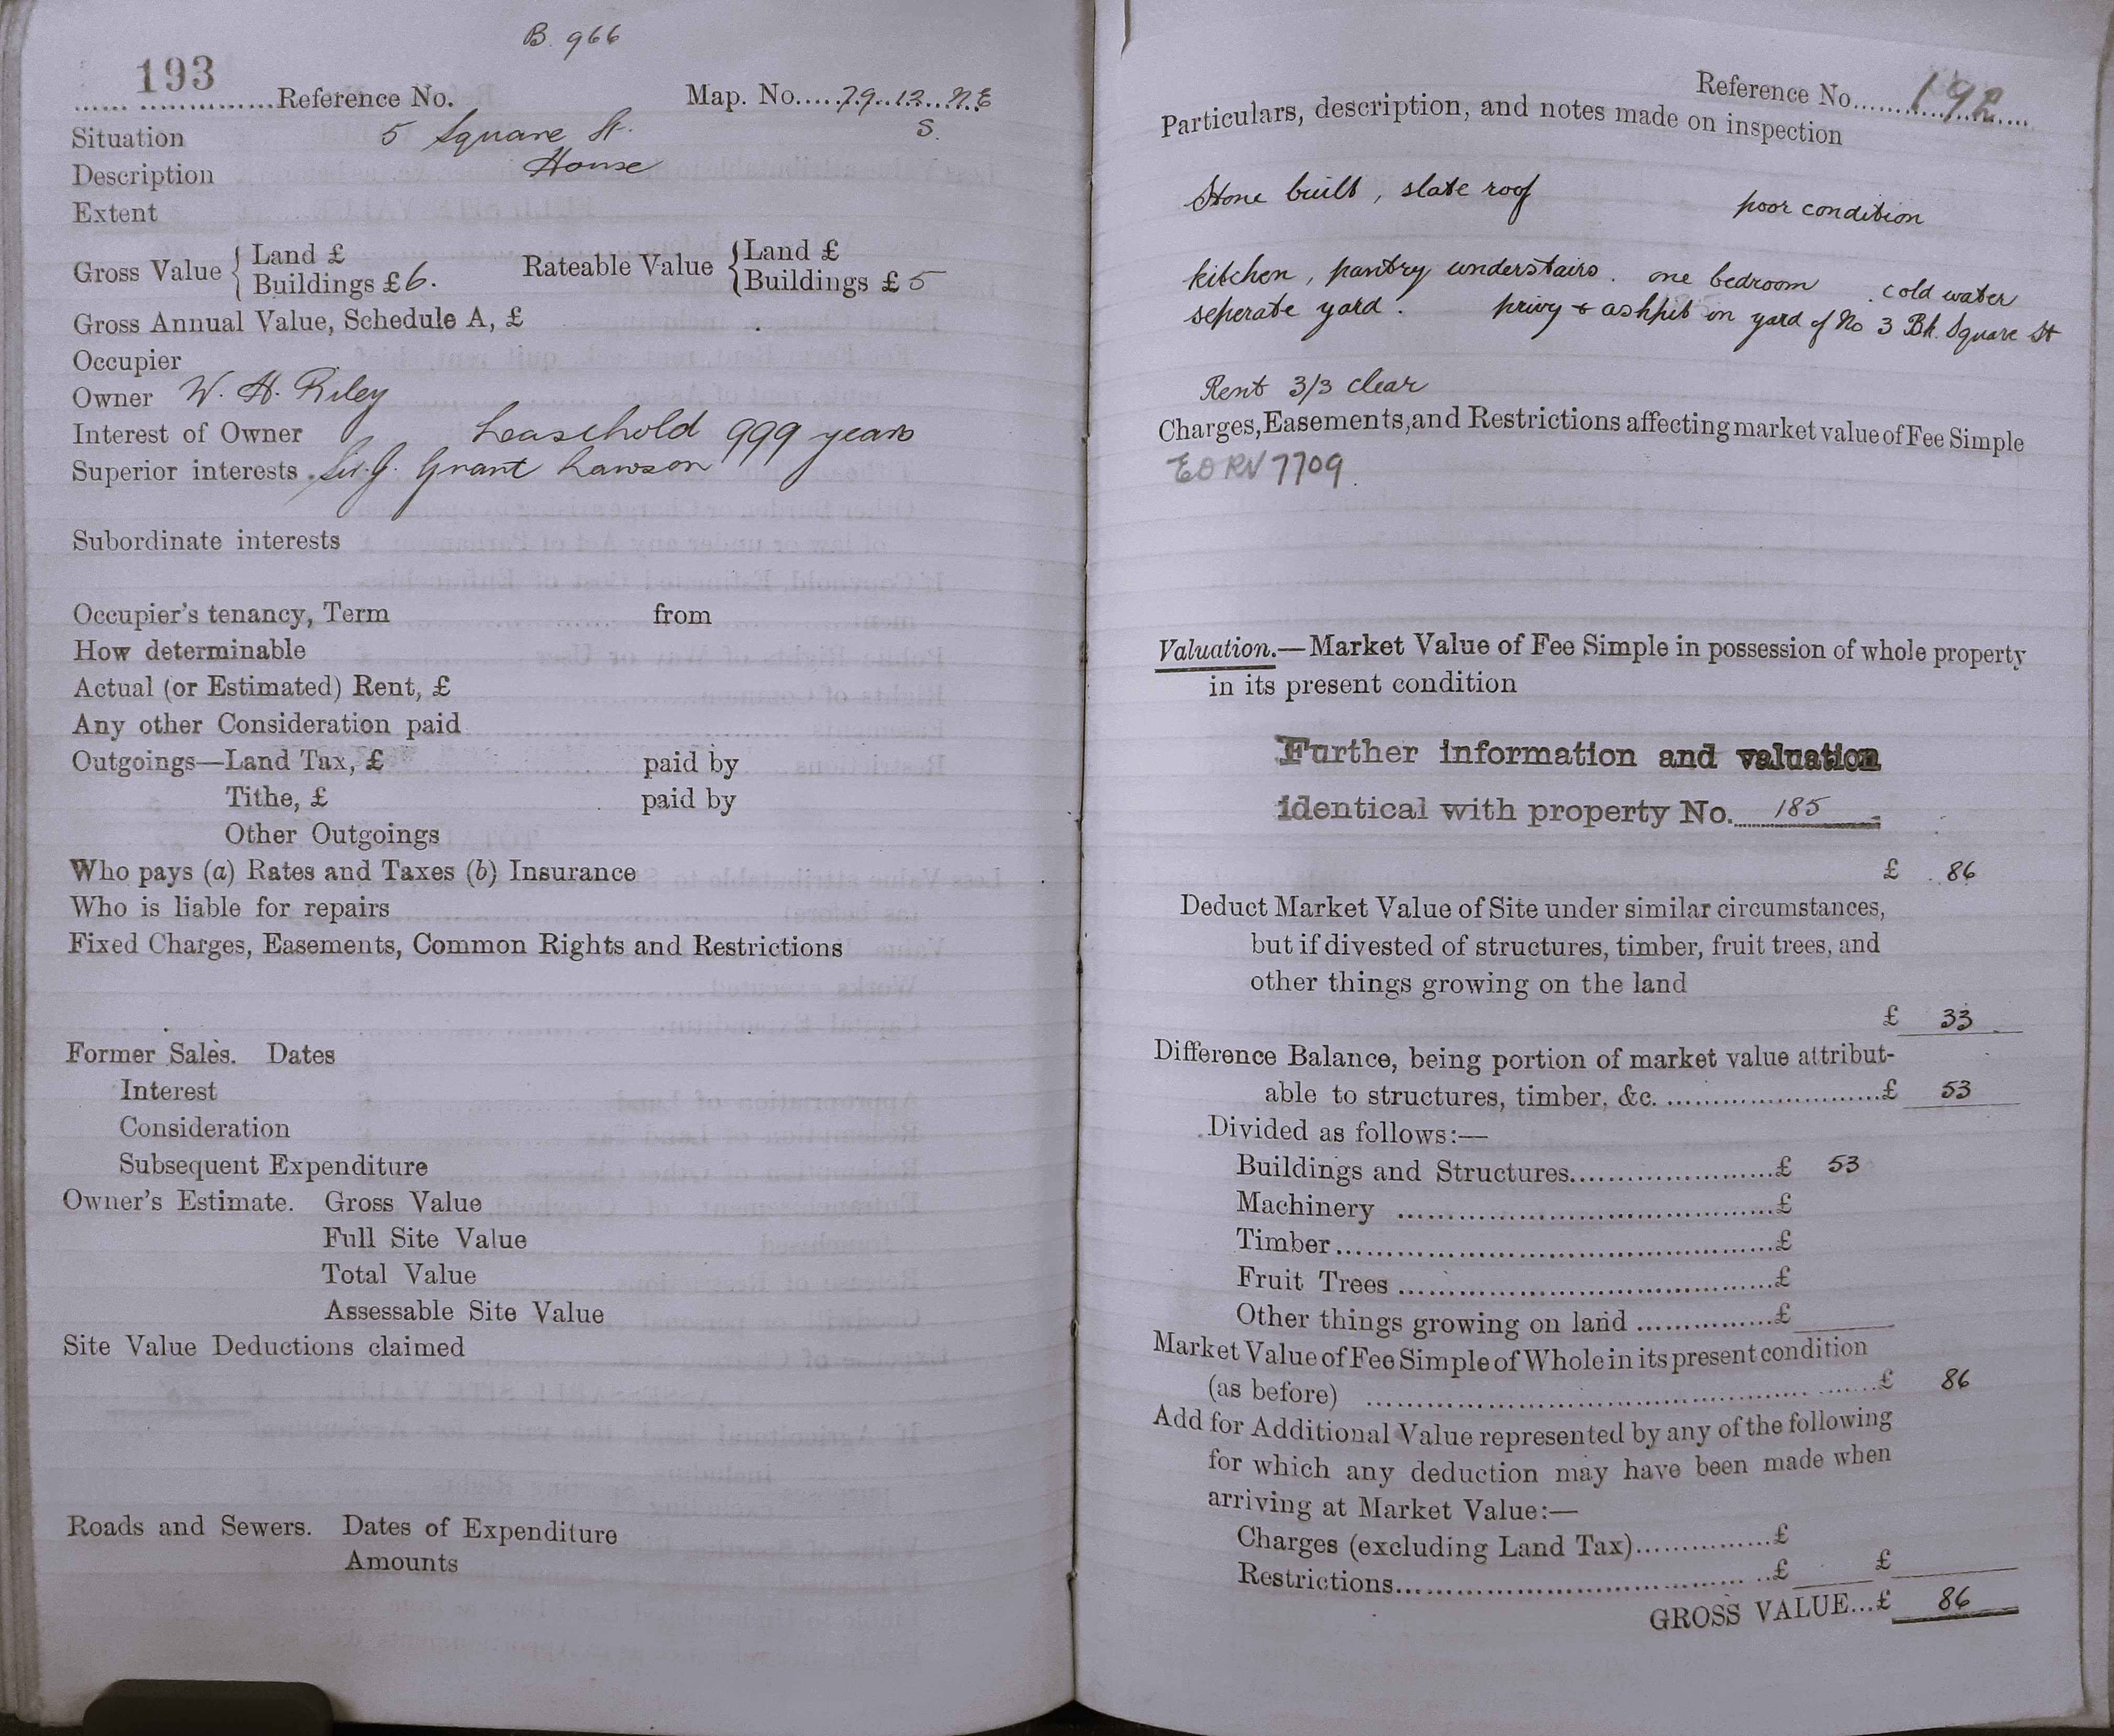 B. 966
193
Reference No. Map. No. 79. 12. N.E
S.
Situation 5 Square St.
Description House
Extent
Gross Value { Land £ Rateable Value { Land £
Buildings £ 6. Buildings £ 5
Gross Annual Value, Schedule A, £
Occupier
Owner W. H. Riley
Interest of Owner Leasehold 999 years
Superior interests Sir J. Grant Lawson
Subordinate interests
Occupier's tenancy, Term from
How determinable
Actual (or Estimated) Rent, £
Any other Consideration paid
Outgoings—Land Tax, £ paid by
Tithe, £ paid by
Other Outgoings
Who pays (a) Rates and Taxes (b) Insurance
Who is liable for repairs
Fixed Charges, Easements, Common Rights and Restrictions
Former Sales. Dates
Interest
Consideration
Subsequent Expenditure
Owner's Estimate. Gross Value
Full Site Value
Total Value
Assessable Site Value
Site Value Deductions claimed
Roads and Sewers. Dates of Expenditure
Amounts
Reference No. 192
Particulars, description, and notes made on inspection
Stone built, slate roof poor condition
kitchen, pantry understairs. one bedroom. cold water
seperate yard. privy + ashpit in yard of No 3 Bk. Square St
Rent 3/3 clear
Charges, Easements, and Restrictions affecting market value of Fee Simple
EORV 7709.
Valuation.—Market Value of Fee Simple in possession of whole property
in its present condition
Further information and valuation
identical with property No. 185
£ 86
Deduct Market Value of Site under similar circumstances,
but if divested of structures, timber, fruit trees, and
other things growing on the land
£ 33
Difference Balance, being portion of market value attribut-
able to structures, timber, &c. £ 53
Divided as follows:—
Buildings and Structures £ 53
Machinery £
Timber £
Fruit Trees £
Other things growing on land £
Market Value of Fee Simple of Whole in its present condition
(as before) £ 86
Add for Additional Value represented by any of the following
for which any deduction may have been made when
arriving at Market Value:—
Charges (excluding Land Tax) £
Restrictions £ £
GROSS VALUE...£ 86